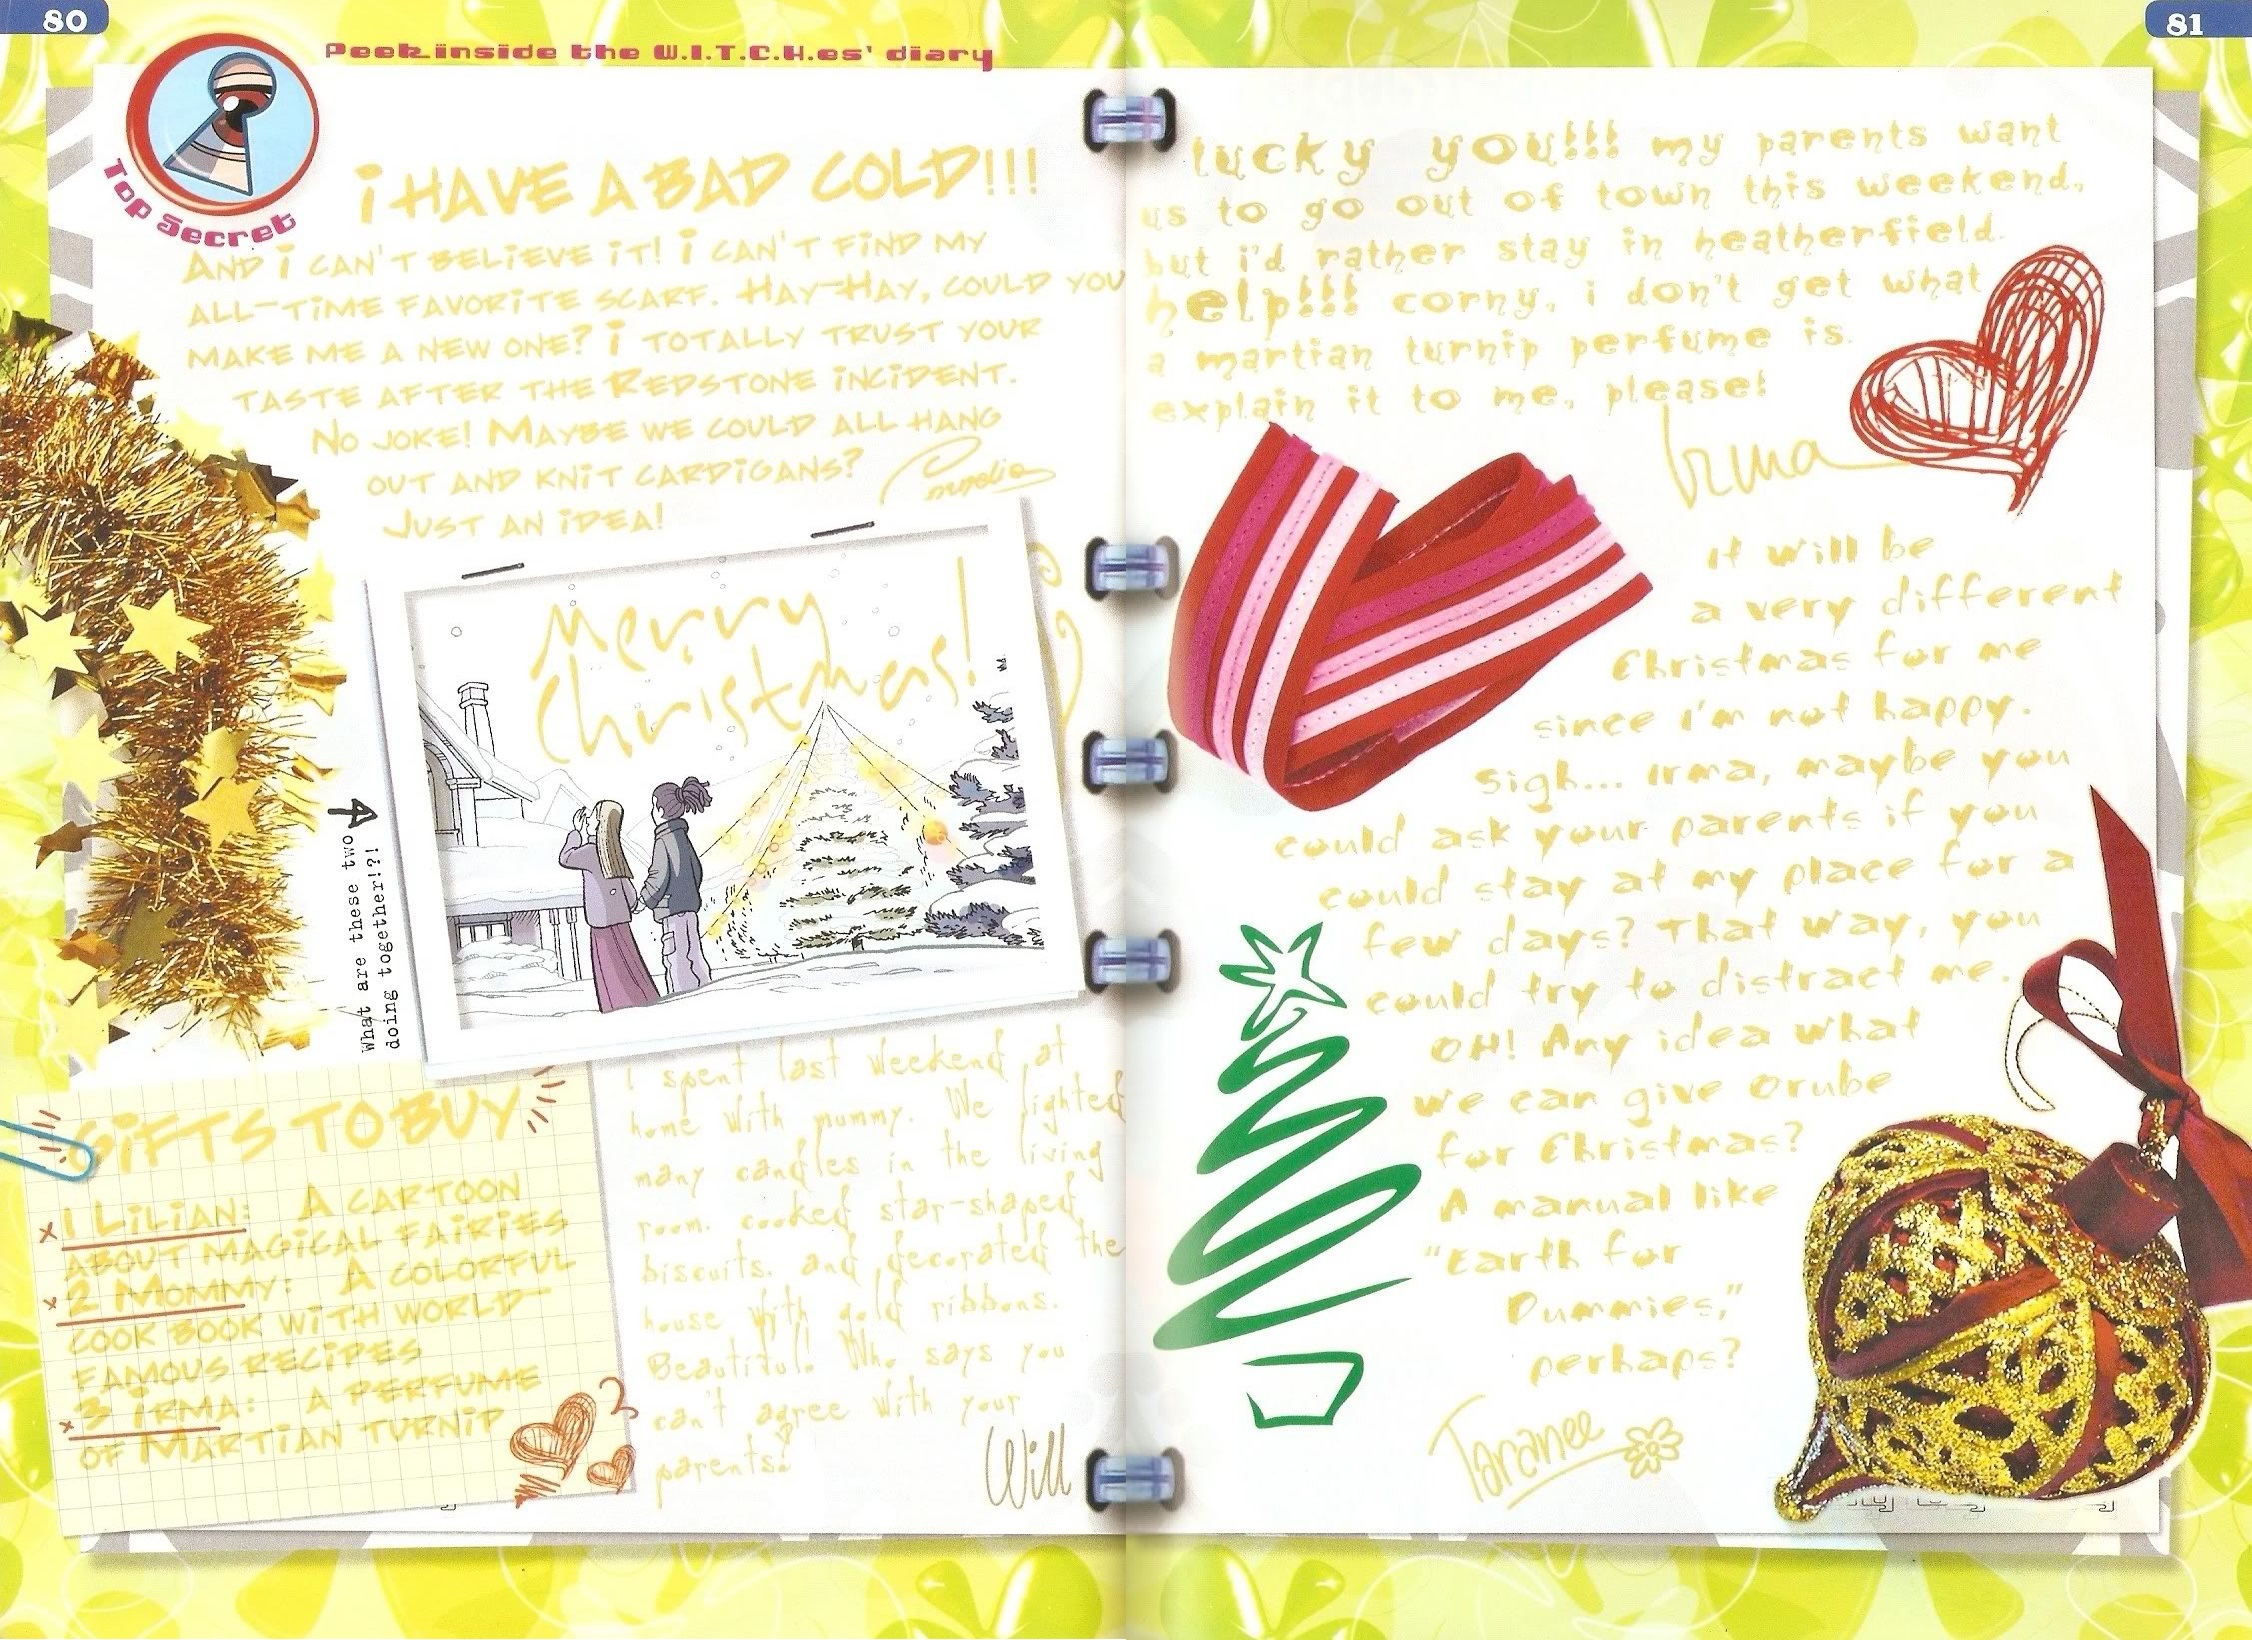 80
Peek inside the W.I.T.C.H.es' diary
Top Secret
i HAVE A BAD COLD!!!
AND i CAN'T BELiEVE iT! i CAN'T FiND MY
ALL-TiME FAVORiTE SCARF. HAY-HAY, COULD YOU
MAKE ME A NEW ONE? i TOTALLY TRUST YOUR
TASTE AFTER THE REDSTONE iNCiDENT.
NO JOKE! MAYBE WE COULD ALL HANG
OUT AND KNiT CARDiGANS?
JUST AN iDEA!
Cornelia
Merry
Christmas!
What are these two
doing together!?!
GiFTS TO BUY
1 LiLiAN: A CARTOON
ABOUT MAGiCAL FAiRiES
2 MOMMY: A COLORFUL
COOK BOOK WiTH WORLD-
FAMOUS RECiPES
3 iRMA: A PERFUME
OF MARTiAN TURNiP
I spent last weekend at
home with mummy. We lighted
many candles in the living
room, cooked star-shaped
biscuits, and decorated the
house with gold ribbons.
Beautiful! Who says you
can't agree with your
parents?
Will
81
lucky you!!! my parents want
us to go out of town this weekend,
but i'd rather stay in heatherfield.
help!!! corny, i don't get what
a martian turnip perfume is.
explain it to me, please!
Irma
It will be
a very different
Christmas for me
since I'm not happy.
Sigh... Irma, maybe you
could ask your parents if you
could stay at my place for a
few days? That way, you
could try to distract me.
OH! Any idea what
we can give Orube
for Christmas?
A manual like
"Earth for
Dummies,"
perhaps?
Taranee